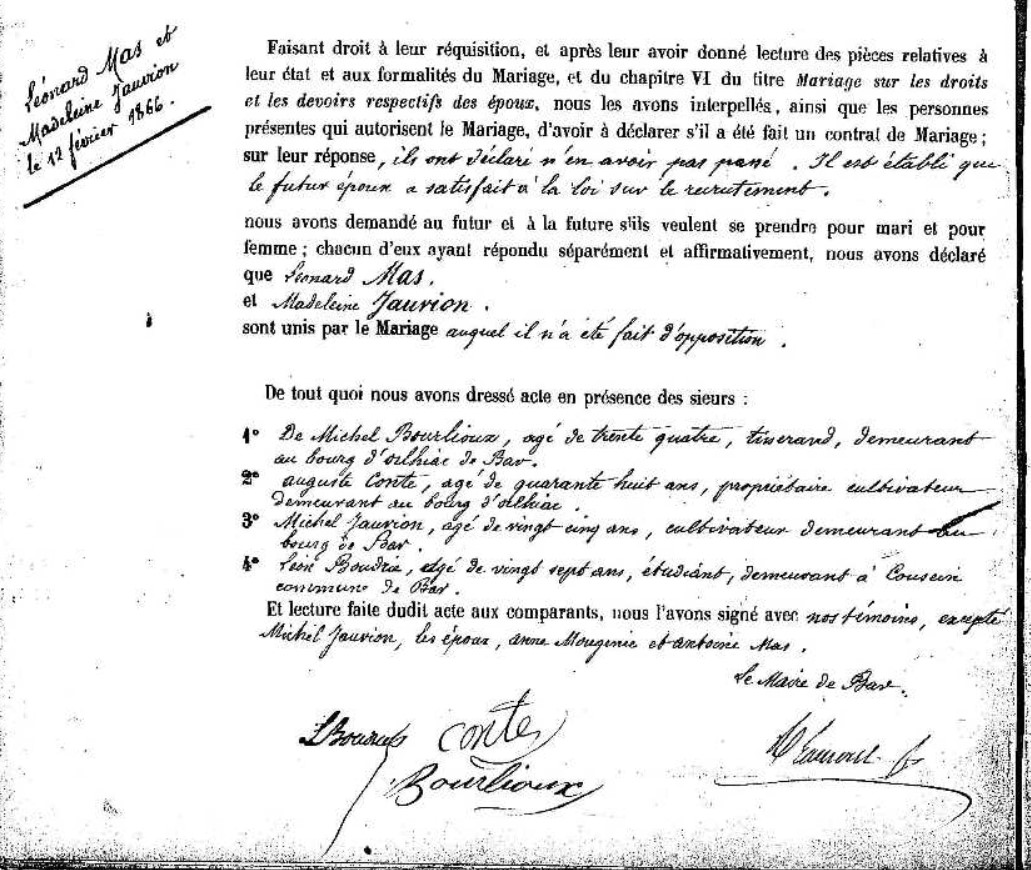 Léonard Mas et
Madeleine Jauvion
le 12 février 1866.
Faisant droit à leur réquisition, et après leur avoir donné lecture des pièces relatives à
leur état et aux formalités du Mariage, et du chapitre VI du titre Mariage sur les droits
et les devoirs respectifs des époux, nous les avons interpellés, ainsi que les personnes
présentes qui autorisent le Mariage, d'avoir à déclarer s'il a été fait un contrat de Mariage ;
sur leur réponse, ils ont déclaré n'en avoir pas passé. Il est établi que
le futur époux a satisfait à la loi sur le recrutement.
nous avons demandé au futur et à la future s'ils veulent se prendre pour mari et pour
femme ; chacun d'eux ayant répondu séparément et affirmativement, nous avons déclaré
que Léonard Mas.
et Madeleine Jauvion.
sont unis par le Mariage auquel il n'a été fait d'opposition.
De tout quoi nous avons dressé acte en présence des sieurs :
1° De Michel Bourlioux, agé de trente quatre, tisserand, demeurant
au bourg d'orlhiac de Bar.
2° auguste Conte, agé de quarante huit ans, propriétaire cultivateur
demeurant au bourg d'orlhiac.
3° Michel Jauvion, agé de vingt cinq ans, cultivateur demeurant au
bourg de Bar.
4° Léon Boudrie, agé de vingt sept ans, étudiant, demeurant à
commune de Bar.
Et lecture faite dudit acte aux comparants, nous l'avons signé avec nos témoins, excepté
Michel Jauvion, les époux, anne Mougenie et antoine Mas.
Le Maire de Bar.
LBoudrie Conte
Bourlioux